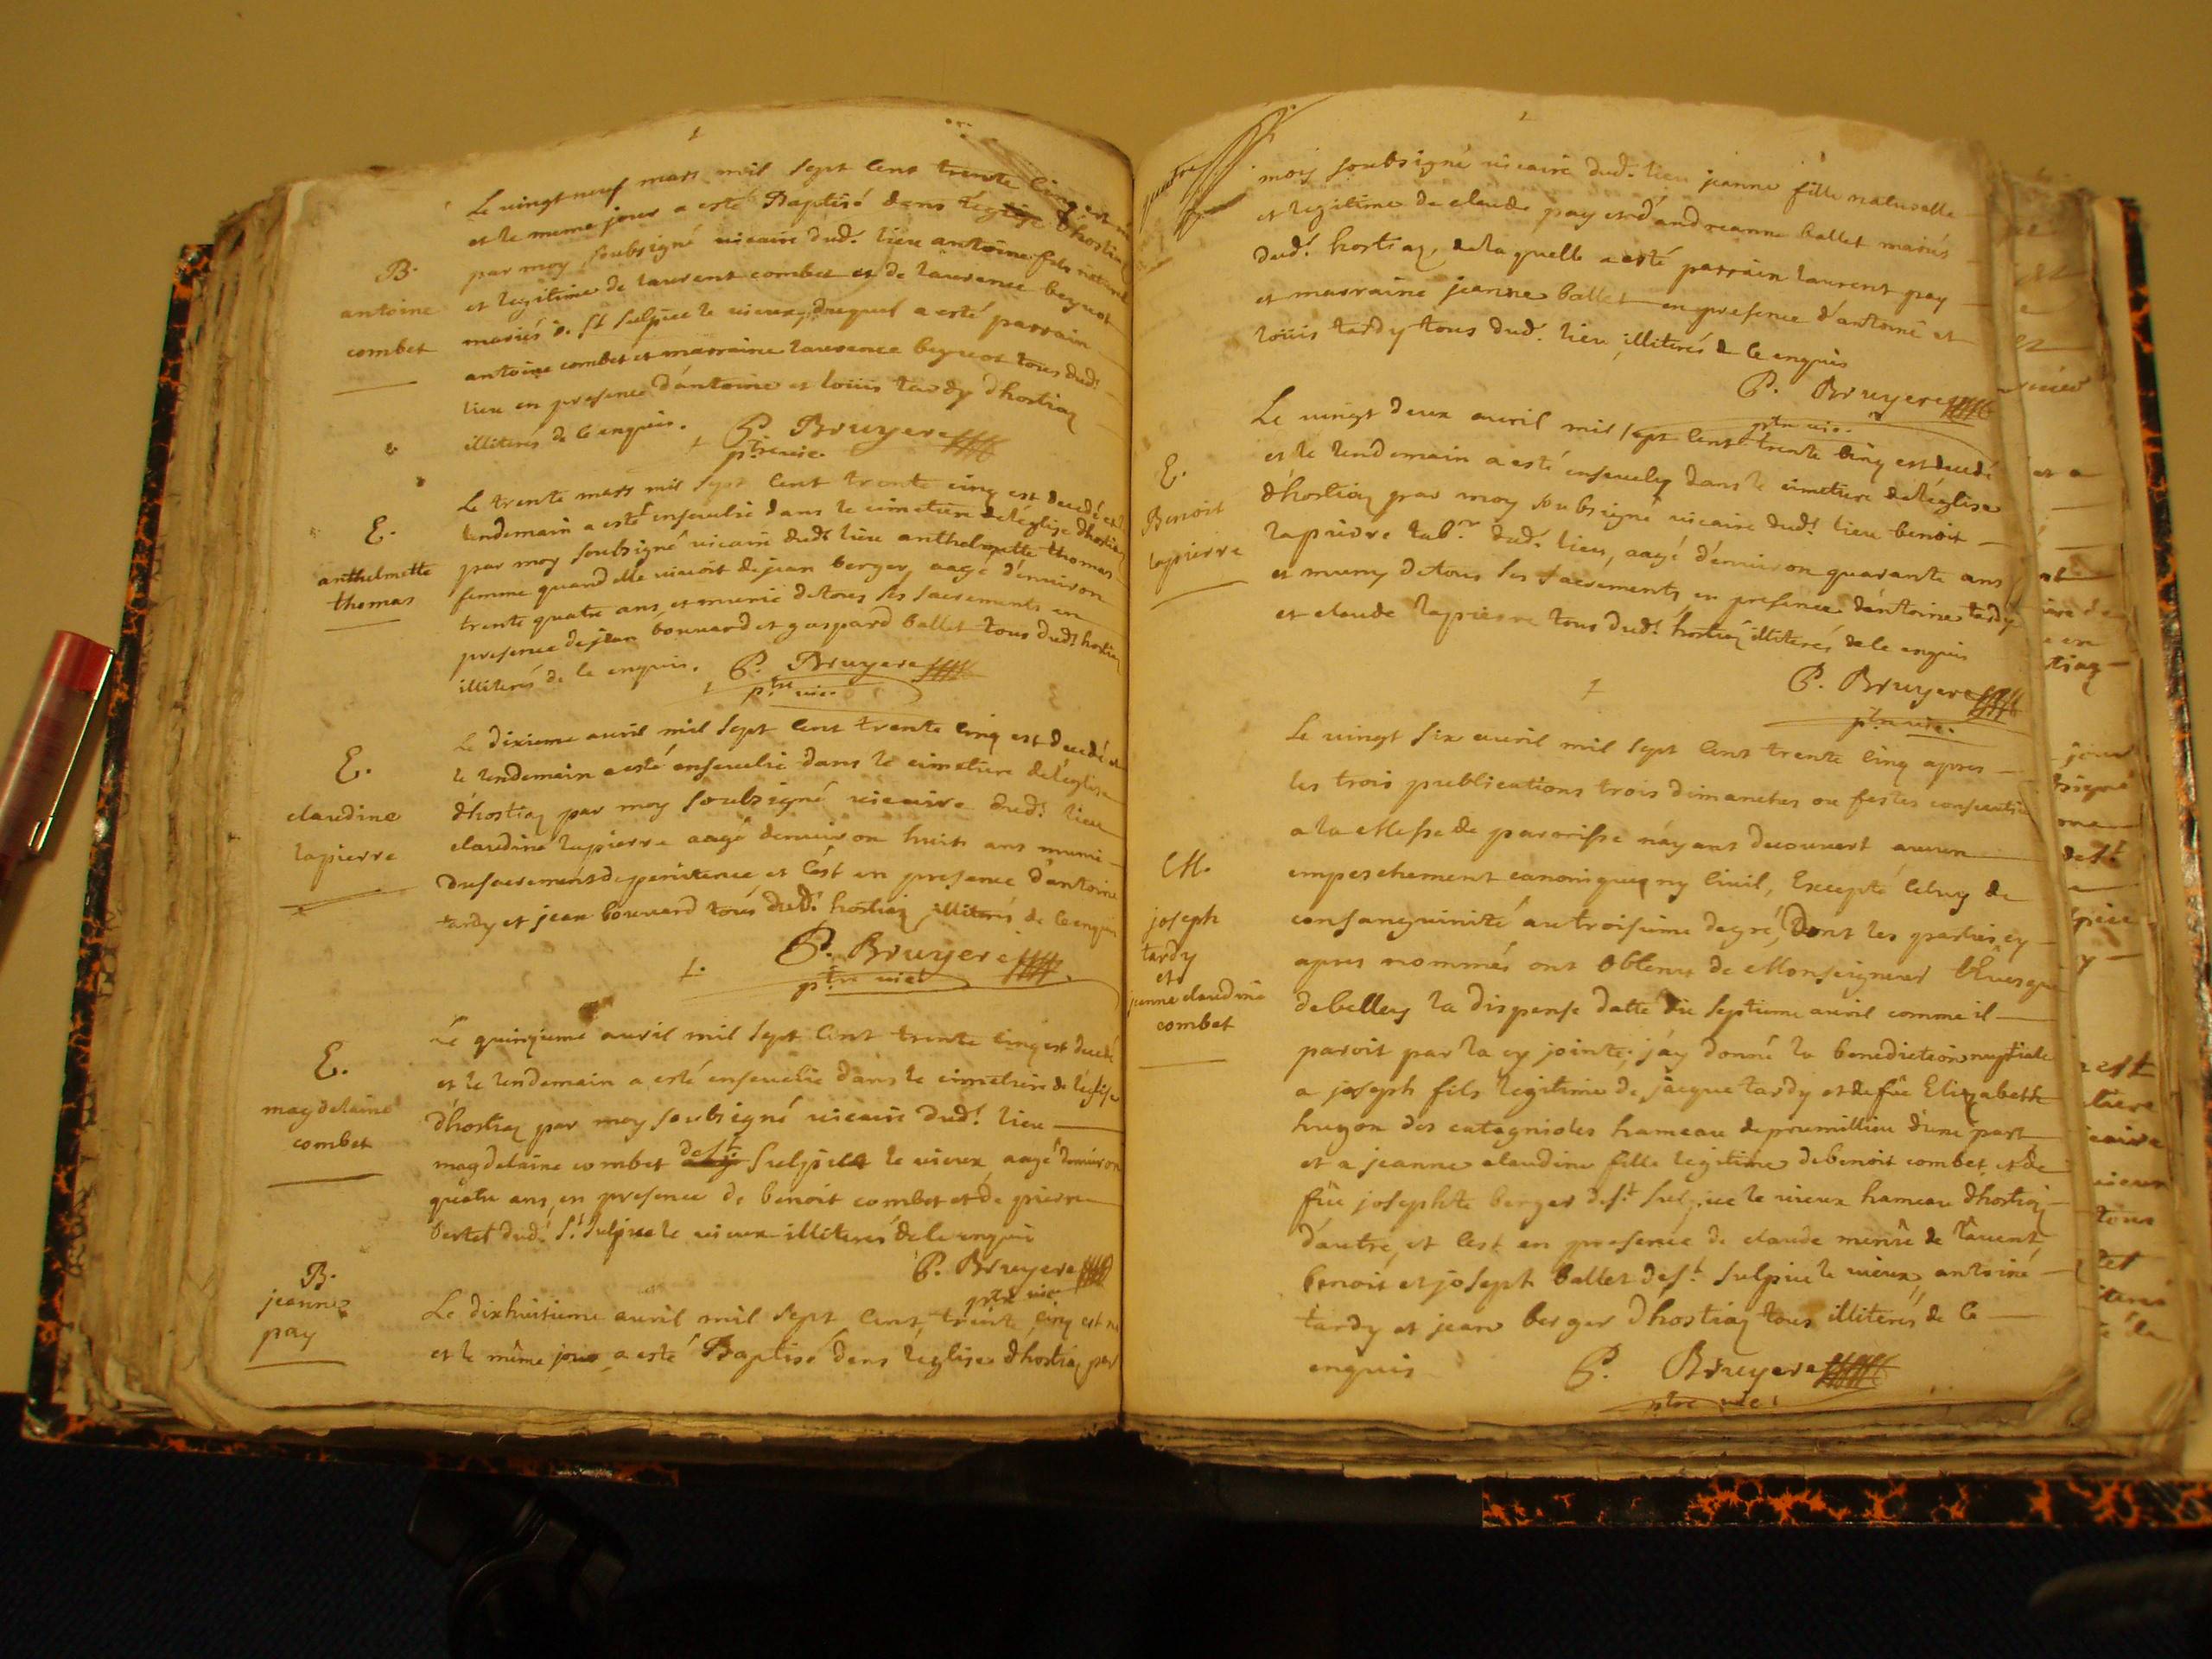 Le vingt neuf mars mil sept cent trente cinq est né
et le meme jour a esté Baptisé dans léglise d'hostiaz
B.
par moy soubsigné vicaire dud. lieu antoine fils naturel
antoine
et legitime de laurent combet et de laurence beguet
combet
mariés de St sulpice le vieux, duquel a esté parrain
antoine combet et marraine laurence beguet tous dud.
lieu en presence d'antoine et loüis tardy d'hostiaz
illiterés de ce enquis. P. Bruyere
ptre vic.
Le trente mars mil sept cent trente cinq est decedé et le
E.
lendemain a esté ensevelie dans le cimetiere de léglise d'hostiaz
anthelmette
par moy soubsigné vicaire dudt lieu anthelmette thomas
thomas
femme quand elle vivoit de jean berger, aagé d'environ
trente quatre ans, et munie de tous ses sacrements en
presence de jean bonnard et gaspard ballet tous dudt hostiaz
illiterés de ce enquis. P. Bruyere
ptre vic.
Le dixieme avril mil sept cent trente cinq est decedé et
E.
le lendemain a esté ensevelie dans le cimetiere de léglise
claudine
d'hostiaz par moy soubsigné vicaire dudt lieu
lapierre
claudine lapierre aagé denviron huit ans munie
du sacrement de penitence et c'est en presence d'antoine
tardy et jean bonnard tous dudt hostiaz illiterés de ce enquis
P. Bruyere
ptre vic.
Le quinzieme avril mil sept cent trente cinq est decedé
E.
et le lendemain a esté ensevelie dans le cimetiere de léglise
magdelaine
d'hostiaz par moy soubsigné vicaire dudt lieu
combet
magdelaine combet de st sulpice le vieux aagé denviron
quatre ans, en presence de benoit combet et de pierre
dud. St sulpice le vieux illiterés de ce enquis
P. Bruyere
ptre vic
B.
jeanne
Le dixhuitieme avril mil sept cent trente cinq est né
pay
et le même jour a esté Baptisé dans léglise d'hostiaz par
moy soubsigné vicaire dud. lieu jeanne fille naturelle
et legitime de claude pay et d'andreanne ballet mariés
dudt hostiaz, de laquelle a esté parrain laurent pay
et marraine jeanne ballet en presence d'antoine et
loüis tardy tous dud. lieu illiterés de ce enquis
P. Bruyere
ptre vic.
Le vingt deux avril mil sept cent trente cinq est decedé
E.
et le lendemain a esté ensevely dans le cimetiere de léglise
Benoit
d'hostiaz par moy soubsigné vicaire dudt lieu benoit
lapierre
lapierre labr. dud. lieu, aagé d'environ quarante ans
et muny de tous ses sacrements en presence d'antoine tardy
et claude lapierre tous dudt hostiaz illiterés de ce enquis
P. Bruyere
ptre vic.
Le vingt six avril mil sept cent trente cinq apres
les trois publications trois dimanches ou festes consecutifs
a la Messe de paroisse n'ayant decouvert aucun
M.
empeschement canonique ny civil, Excepté celuy de
joseph
consanguinité au troisieme degré, Dont les parties cy
tardy
apres nommés ont obtenu de Monseigneur l'Evesque
et
jeanne claudine
de belley la dispense datté du septieme avril comme il
combet
paroit par la cy jointe; j'ay donné la benediction nuptiale
a joseph fils legitime de jacque tardy et de füe Elizabeth
hugon des catagnioles hameau de prumillieu d'une part
et a jeanne claudine fille legitime de benoit combet et de
füe josephte berger de st sulpice le vieux hameau d'hostiaz
d'autre, et c'est en presence de claude
benoit et joseph ballet de st sulpice le vieux, antoine
tardy et jean berger d'hostiaz tous illiterés de ce
enquis P. Bruyere
ptre vic.